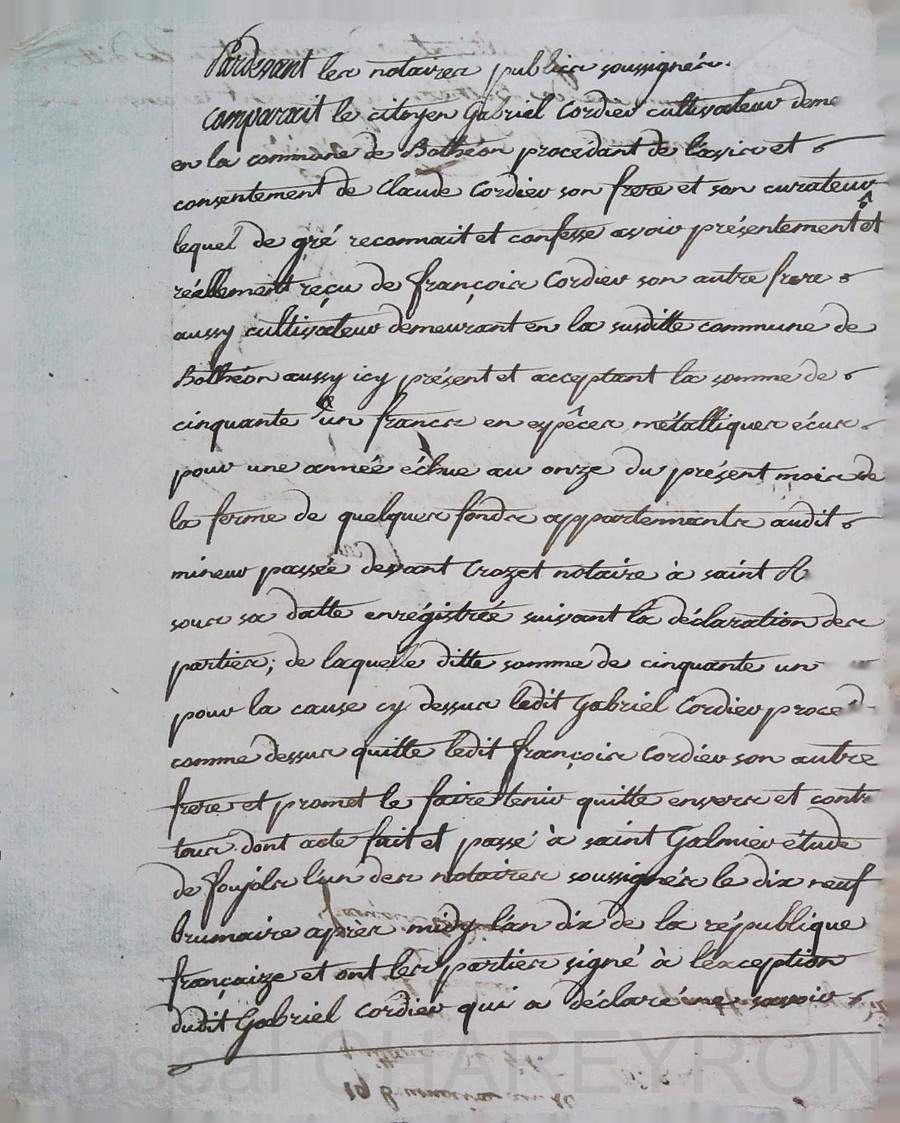 Pardevant les notaires publics soussignés.
comparait le citoyen Gabriel Cordier cultivateur deme
en la commune de Bothéon procédant de l'avis et
consentement de Claude Cordier son frere et son curateur
lequel de gré reconnait et confesse avoir présentement et
réellement reçu de françois Cordier son autre frere
aussy cultivateur demeurant en la susditte commune de
Bothéon aussy icy présent et acceptant la somme de
cinquante un francs en espêces métalliques écus
pour une année échue au onze du présent mois de
la ferme de quelques fonds appartennants audit
mineur passée devant Crozet notaire à saint
sous sa datte enrégistrée suivant la déclaration des
parties; de laquelle ditte somme de cinquante un
pour la cause cy dessus ledit Gabriel Cordier procéd
comme dessus quitte ledit françois Cordier son autre
frere et promet le faire tenir quitte envers et contre
tous dont acte fait et passé à saint Galmier étude
de foujols l'un des notaires soussignés le dix neuf
brumaire après midy l'an dix de la république
françaize et ont les parties signé à l'exception
dudit Gabriel Cordier qui a déclaré ne savoir
Pascal CHAREYRON